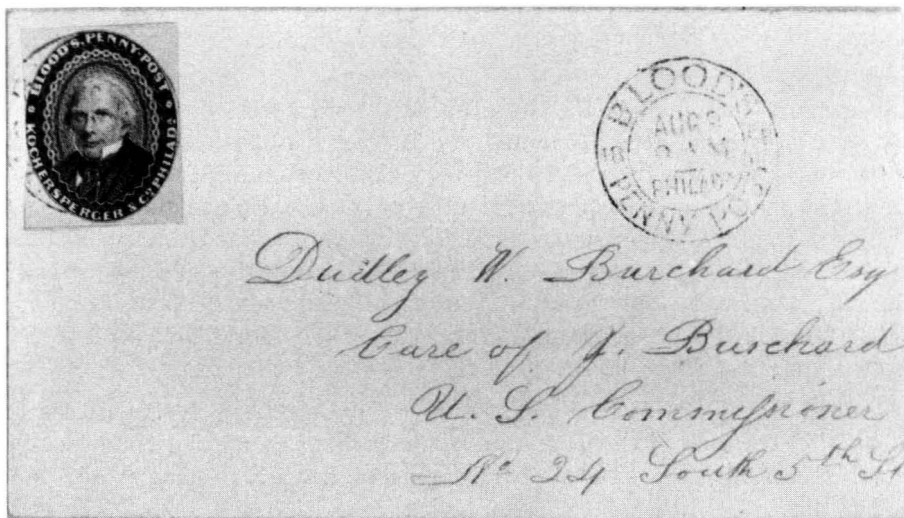 BLOOD'S. PENNY. POST
KOCHERSPERGER & CO. PHILADA.
BLOOD'S
PENNY POST
AUG
PHILADA
Dudley W. Burchard Esq
Care of J. Burchard
U. S. Commissioner
No 24 South 5th St